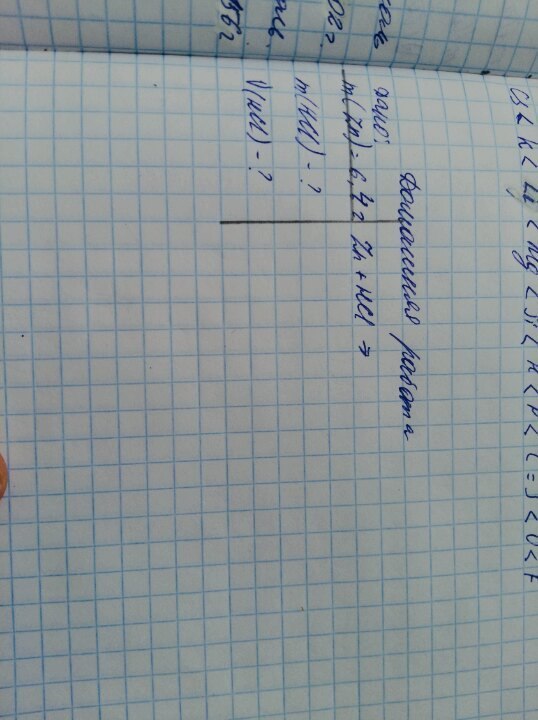 Cs < K < Li < Mg < Si < H < P < C = S < O < F
Домашняя работа
Дано:
m(Zn) = 6,4г Zn + HCl →
m(HCl) - ?
V(HCl) - ?